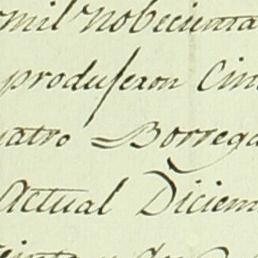 mil Nobecienta
produseron Cin
uatro = Borrega
Actual Diciem